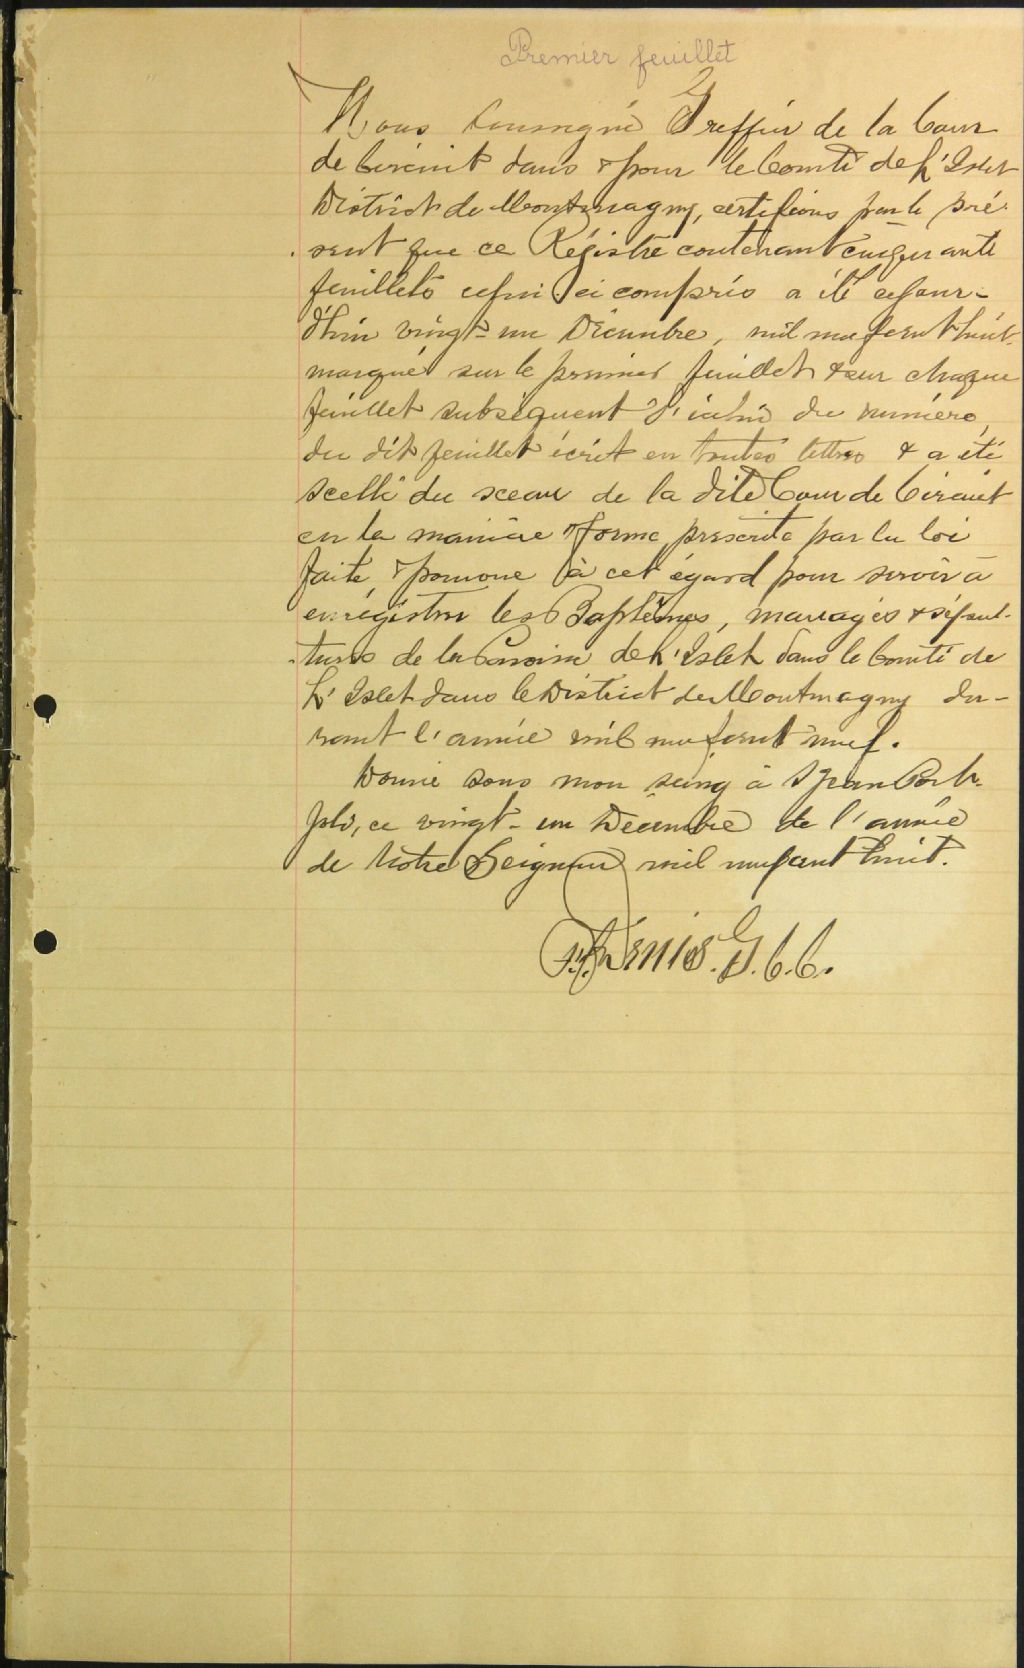 Premier feuillet
Nous soussigné Greffier de la Cour
de Circuit dans & pour le Comté de L'Islet
District de Montmagny, certifions par le pré-
sent que ce Régistre contenant cinquante
feuillets celui ci compris a été cejour-
d'hui vingt-un Décembre, mil neuf cent huit,
marqué sur le premier feuillet & sur chaque
feuillet subséquent du numéro
du dit feuillet écrit en toutes lettres & a été
scellé du sceau de la dite Cour de Circuit
en la manière & forme prescrite par la loi
faite & pourvue à cet égard pour servir à
enrégistrer les Baptêmes, mariages & sépul-
tures de la Paroisse de L'Islet dans le Comté de
L'Islet dans le District de Montmagny du-
rant l'année mil neuf cent neuf.
Donné sous mon seing à St Jean Port
Joli, ce vingt-un Décembre de l'année
de Notre Seigneur mil neuf cent huit.
G.C.C.